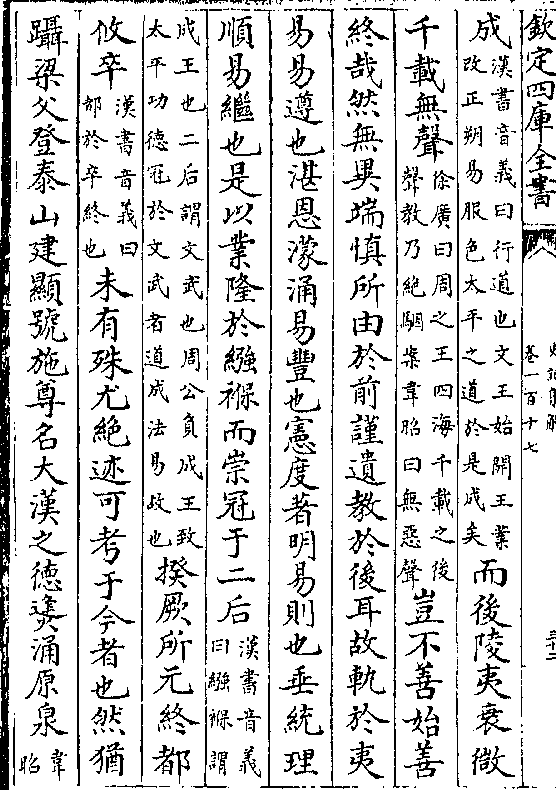 欽定四庫全書
史記集解
卷一百十七
三十二
成漢書音義曰行道也文王始開王業改正朔易服色太平之道於是成矣而後陵夷衰微
千載無聲徐廣曰周之王四海千載之後聲教乃絶駰案韋昭曰無惡聲豈不善始善
終哉然無異端慎所由於前謹遺教於後耳故軌於夷
易易遵也湛恩濛涌易豐也憲度著明易則也垂統理
順易繼也是以業隆於繈褓而崇冠于二后漢書音義曰繈褓謂
成王也二后謂文武也周公負成王致太平功德冠於文武者道成法易故也揆厥所元終都
攸卒漢書音義曰都於卒終也未有殊尤絶迹可考于今者也然猶
躡梁父登泰山建顯號施尊名大漢之德涌原泉韋昭